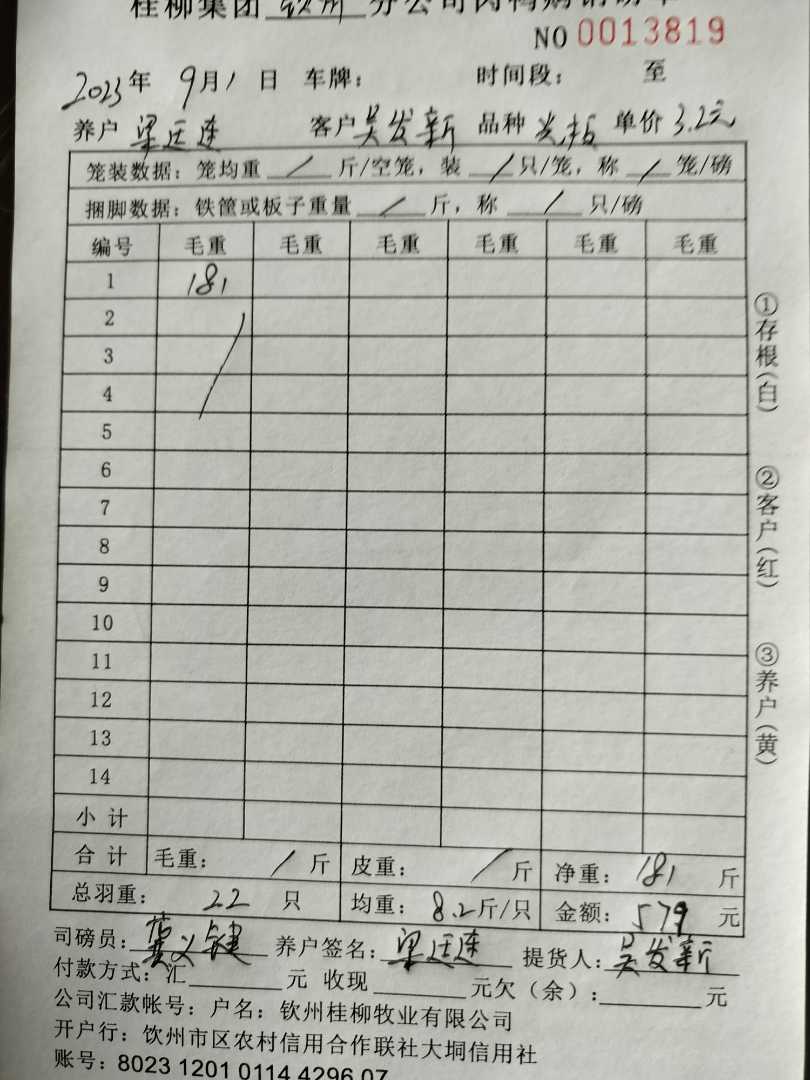 桂柳集团 钦州 分公司肉鸭购销磅单
NO 0013819
2023年 9月1日 车牌： 时间段： 至
养户 梁廷连 客户 吴发新 品种 光板 单价 3.2元
笼装数据：笼均重 / 斤/空笼，装 / 只/笼，称 / 笼/磅
捆脚数据：铁筐或板子重量 / 斤，称 / 只/磅
编号 毛重 毛重 毛重 毛重 毛重 毛重
1 181
2
3
4
5
6
7
8
9
10
11
12
13
14
小计
合计 毛重： / 斤 皮重： / 斤 净重：181 斤
总羽重： 22 只 均重：8.2斤/只 金额：579 元
司磅员：龚义键 养户签名：梁廷连 提货人：吴发新
付款方式：汇 元 收现 元欠（余）： 元
公司汇款帐号：户名：钦州桂柳牧业有限公司
开户行：钦州市区农村信用合作联社大垌信用社
账号：8023 1201 0114 4296 07
①存根(白)
②客户(红)
③养户(黄)